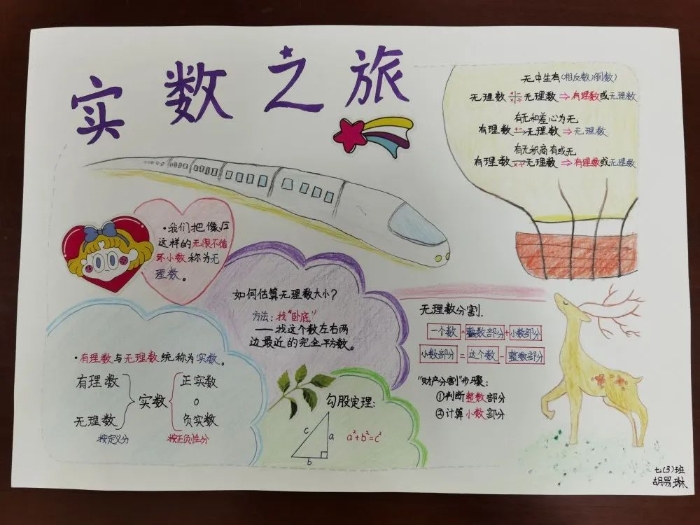 实数之旅
无中生有(相反数)(倒数)
无理数 无理数⇒有理数或无理数
有无和差心为无
有理数 无理数⇒无理数
有无积商有或无
有理数 无理数⇒有理数或无理数
·我们把像
这样的无限不循
环小数称为无
理数。
如何估算无理数大小?
方法:找"卧底"
——找这个数左右两
边最近的完全平方数。
无理数分割.
一个数=整数部分+小数部分
小数部分=这个数-整数部分
"财产分割"步骤:
①判断整数部分
②计算小数部分
·有理数与无理数统称为实数。
有理数
无理数
按定义分
实数
正实数
0
负实数
按正负性分
勾股定理:
c
a
b
a²+b²=c²
七(3)班